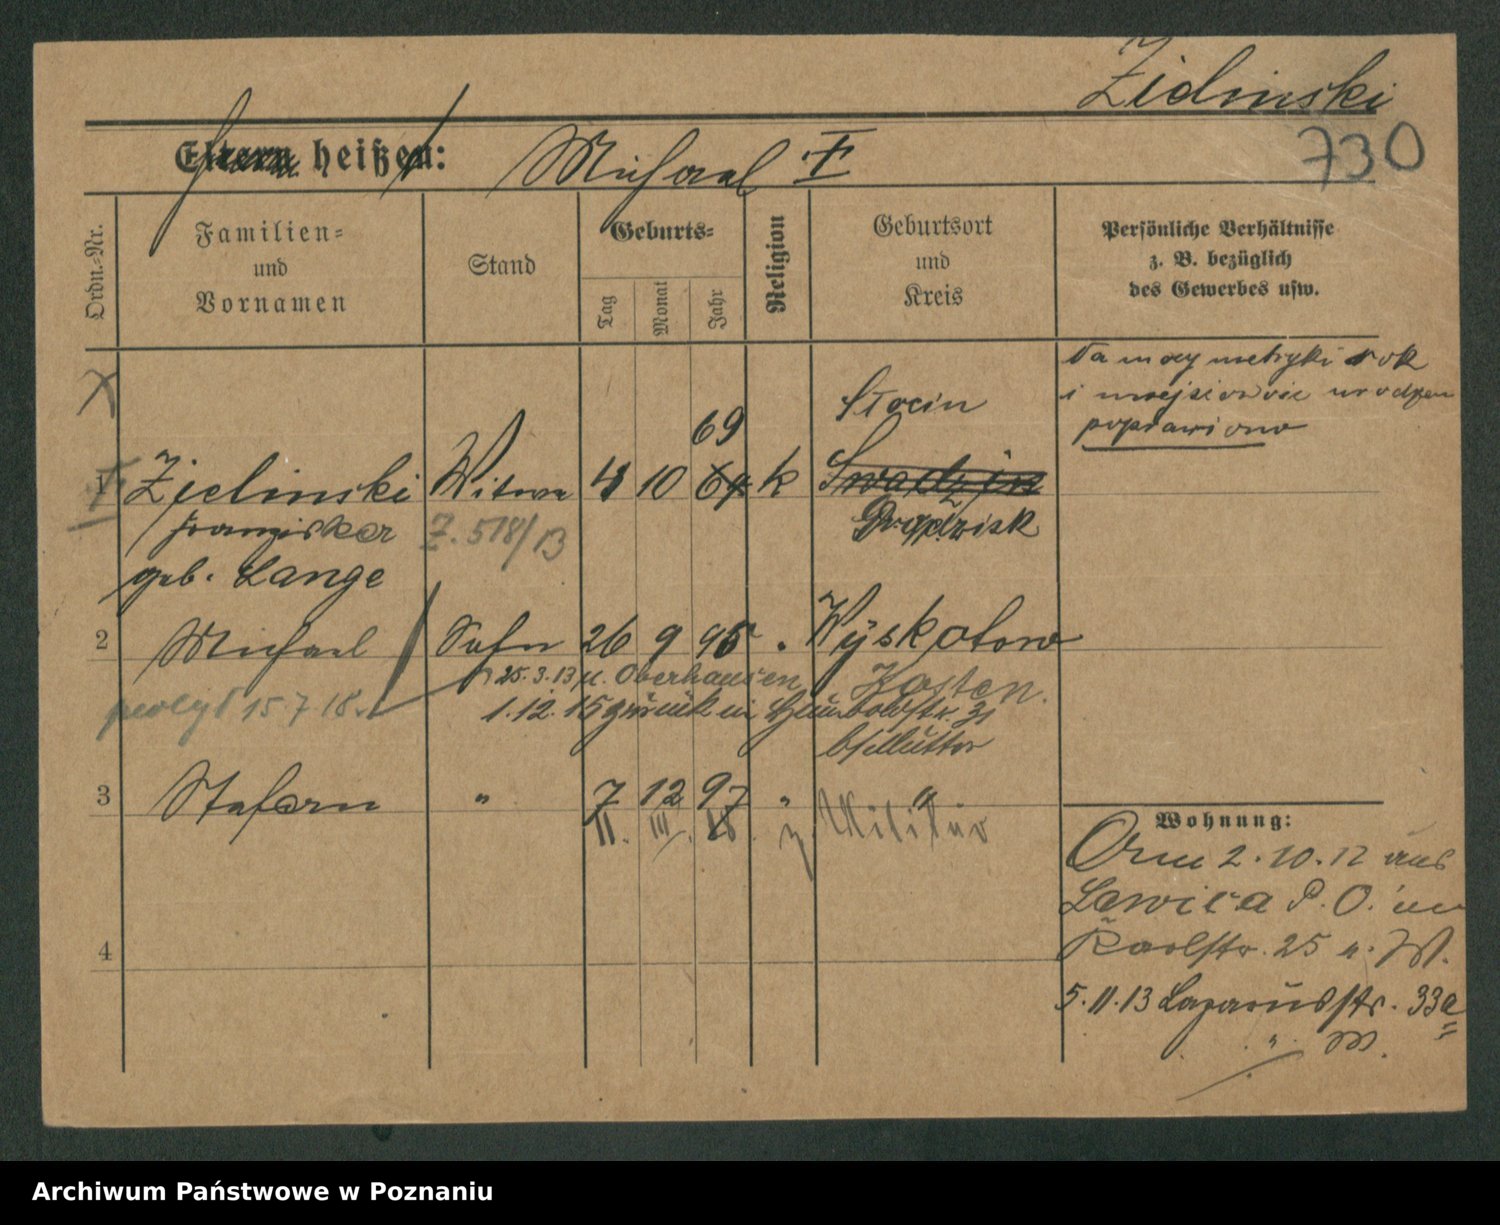 Zielinski
730
Eltern heißen: Michael I
Ordn.-Nr.
Familien-
und
Vornamen
Stand
Geburts-
Tag
Monat
Jahr
Religion
Geburtsort
und
Kreis
Persönliche Verhältnisse
z. B. bezüglich
des Gewerbes usw.
na mocy metryki rok
i miejscowość urodzen
poprawiono
Stocin
69
Zielinski Witwe 4 10 64 k Swadzin
Franziska Z. 518/13 Grodzisk
geb. Lange
2 Michael Sohn 26 9 95 " Wyskotow
25.3.13 n. Oberhausen Kosten.
15 7 18.
1.12.15 zurück in Humboldtstr. 31
3 Stefan " 7 12 97 " "
II. III. 18. z Militär
4
Wohnung:
2.10.12 aus
Lawica P. O. in
Karlstr. 25 b. W.
5.11.13 Lazarusstr. 33a
" W.
Archiwum Państwowe w Poznaniu